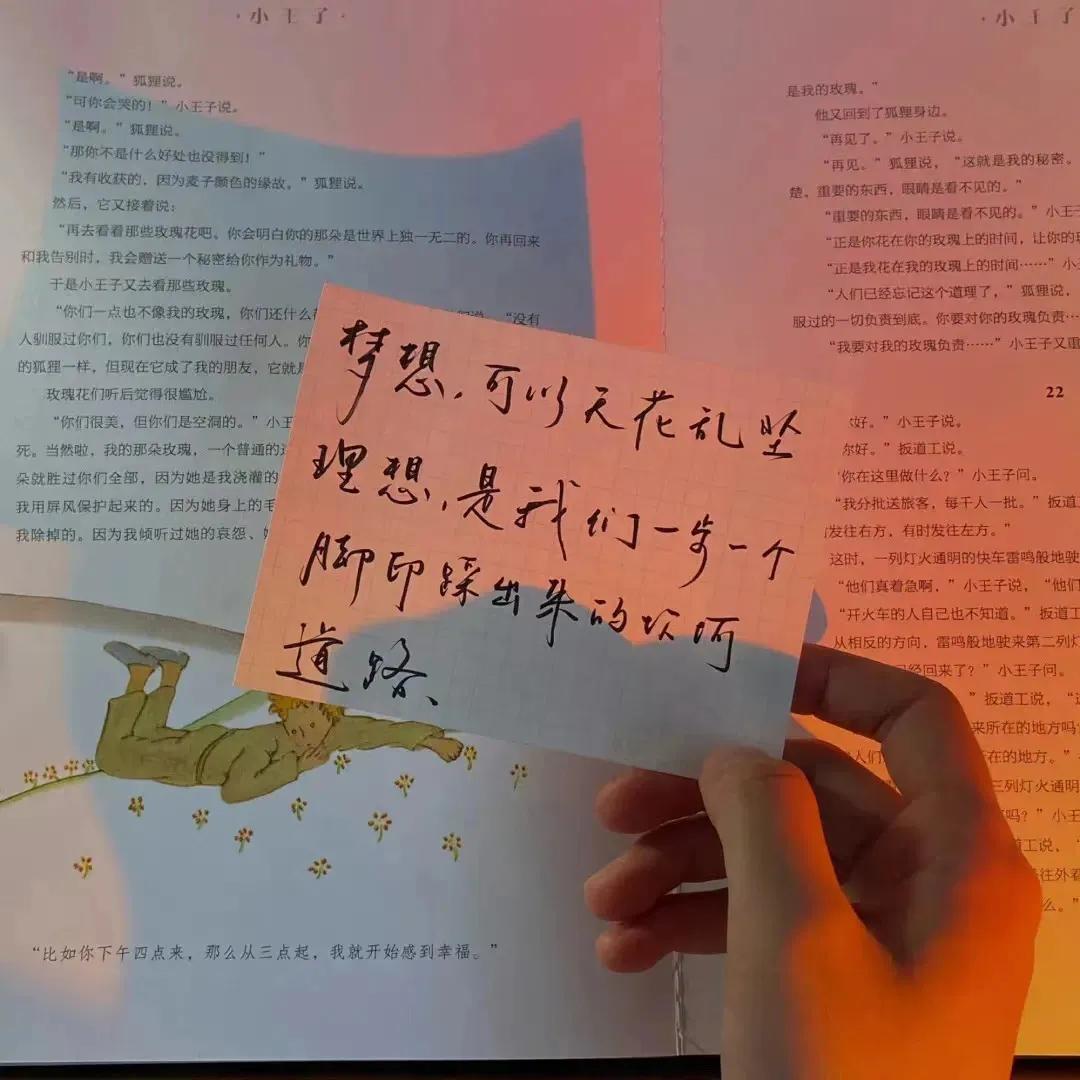 ·小王子·
“是啊。”狐狸说。
“可你会哭的！”小王子说。
“是啊。”狐狸说。
“那你不是什么好处也没得到！”
“我有收获的，因为麦子颜色的缘故。”狐狸说。
然后，它又接着说：
“再去看看那些玫瑰花吧。你会明白你的那朵是世界上独一无二的。你再回来
和我告别时，我会赠送一个秘密给你作为礼物。”
于是小王子又去看那些玫瑰。
“你们一点也不像我的玫瑰，你们还什么都 “没有
人驯服过你们，你们也没有驯服过任何人。你
的狐狸一样，但现在它成了我的朋友，它就是
玫瑰花们听后觉得很尴尬。
“你们很美，但你们是空洞的。”小王
死。当然啦，我的那朵玫瑰，一个普通的过
朵就胜过你们全部，因为她是我浇灌的
我用屏风保护起来的。因为她身上的毛
我除掉的。因为我倾听过她的哀怨、
“比如你下午四点来，那么从三点起，我就开始感到幸福。”
梦想，可以天花乱坠
理想，是我们一步一个
脚印踩出来的坎坷
道路、
·小王子
是我的玫瑰。”
他又回到了狐狸身边。
“再见了。”小王子说。
“再见。”狐狸说，“这就是我的秘密。
楚。重要的东西，眼睛是看不见的。”
“重要的东西，眼睛是看不见的。”小王子
“正是你花在你的玫瑰上的时间，让你的玫
“正是我花在我的玫瑰上的时间……”小
“人们已经忘记这个道理了，”狐狸说，
服过的一切负责到底。你要对你的玫瑰负责…
“我要对我的玫瑰负责……”小王子又重
22
好。”小王子说。
尔好。”扳道工说。
你在这里做什么？”小王子问。
“我分批送旅客，每千人一批。”扳道
发往右方，有时发往左方。”
这时，一列灯火通明的快车雷鸣般地驶
“他们真着急啊，”小王子说，“他们
“开火车的人自己也不知道。”扳道工
从相反的方向，雷鸣般地驶来第二列灯
已经回来了？”小王子问。
”扳道工说，
来所在的地方吗
人们 所在的地方。”
三列灯火通明
吗？”小王
道工说，
往外看
么。”